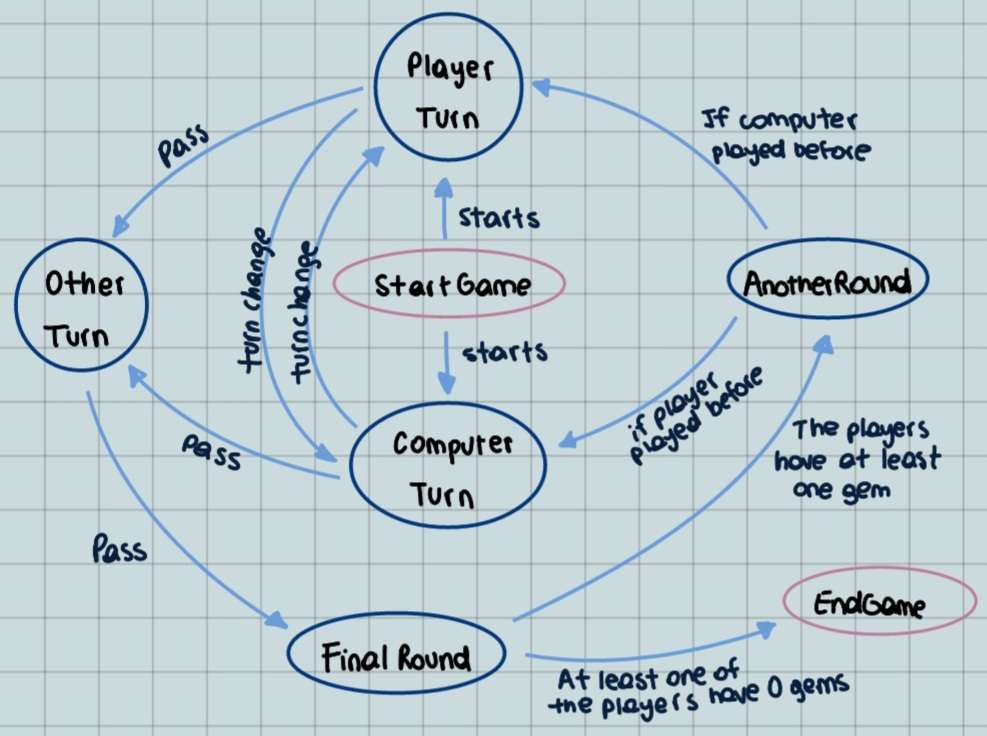 Player
Turn
If computer
played before
pass
starts
turn change
turnchange
Other
Turn
StartGame
AnotherRound
starts
if player
played before
Computer
Turn
pass
The players
have at least
one gem
Pass
EndGame
Final Round
At least one of
the players have 0 gems